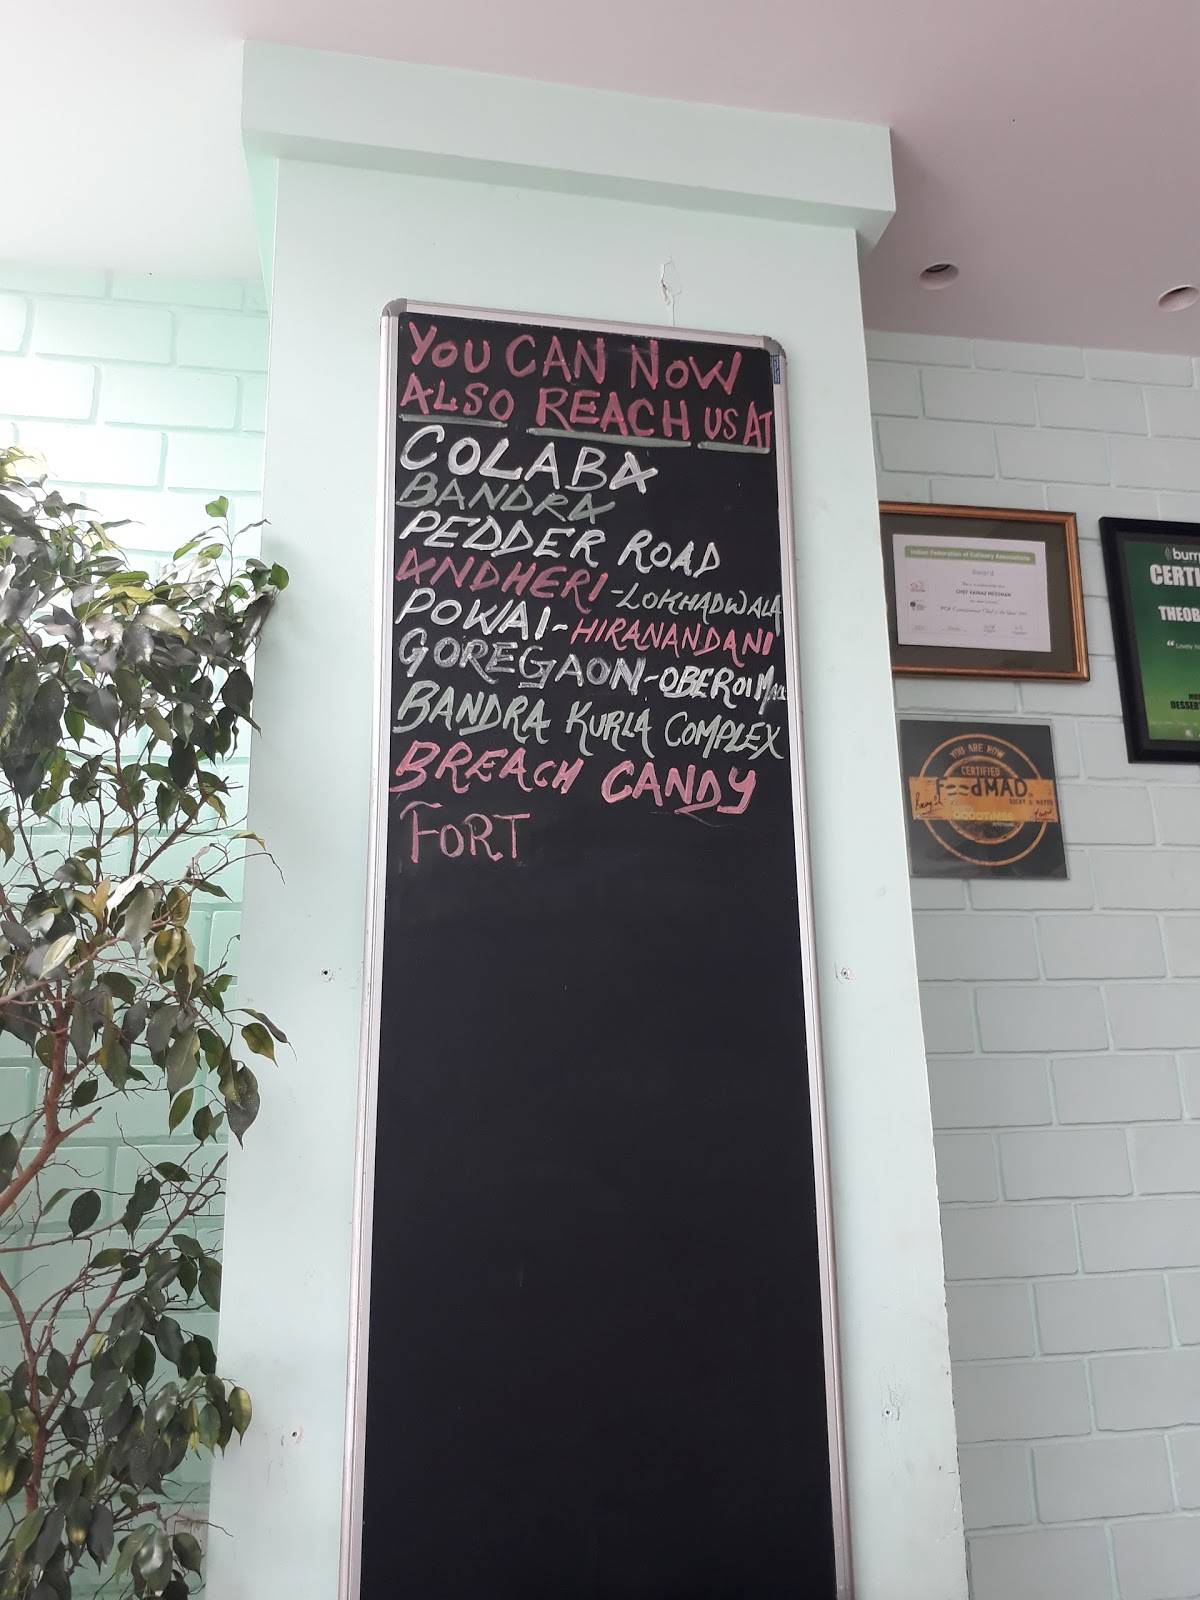 YOU CAN NOW
ALSO REACH US AT
COLABA
BANDRA
PEDDER ROAD
ANDHERI-LOKHADWALA
POWAI-HIRANANDANI
GOREGAON-OBEROI MALL
BANDRA KURLA COMPLEX
BREACH CANDY
FORT
Indian Federation of Culinary Associations
Award
CHEF KAINAZ MESSMAN
burr
CERTI
THEOB
Lovely
DESSER
YOU ARE NOW
CERTIFIED
FoodMAD
ROCKY & MAYUR
GOODTIMES